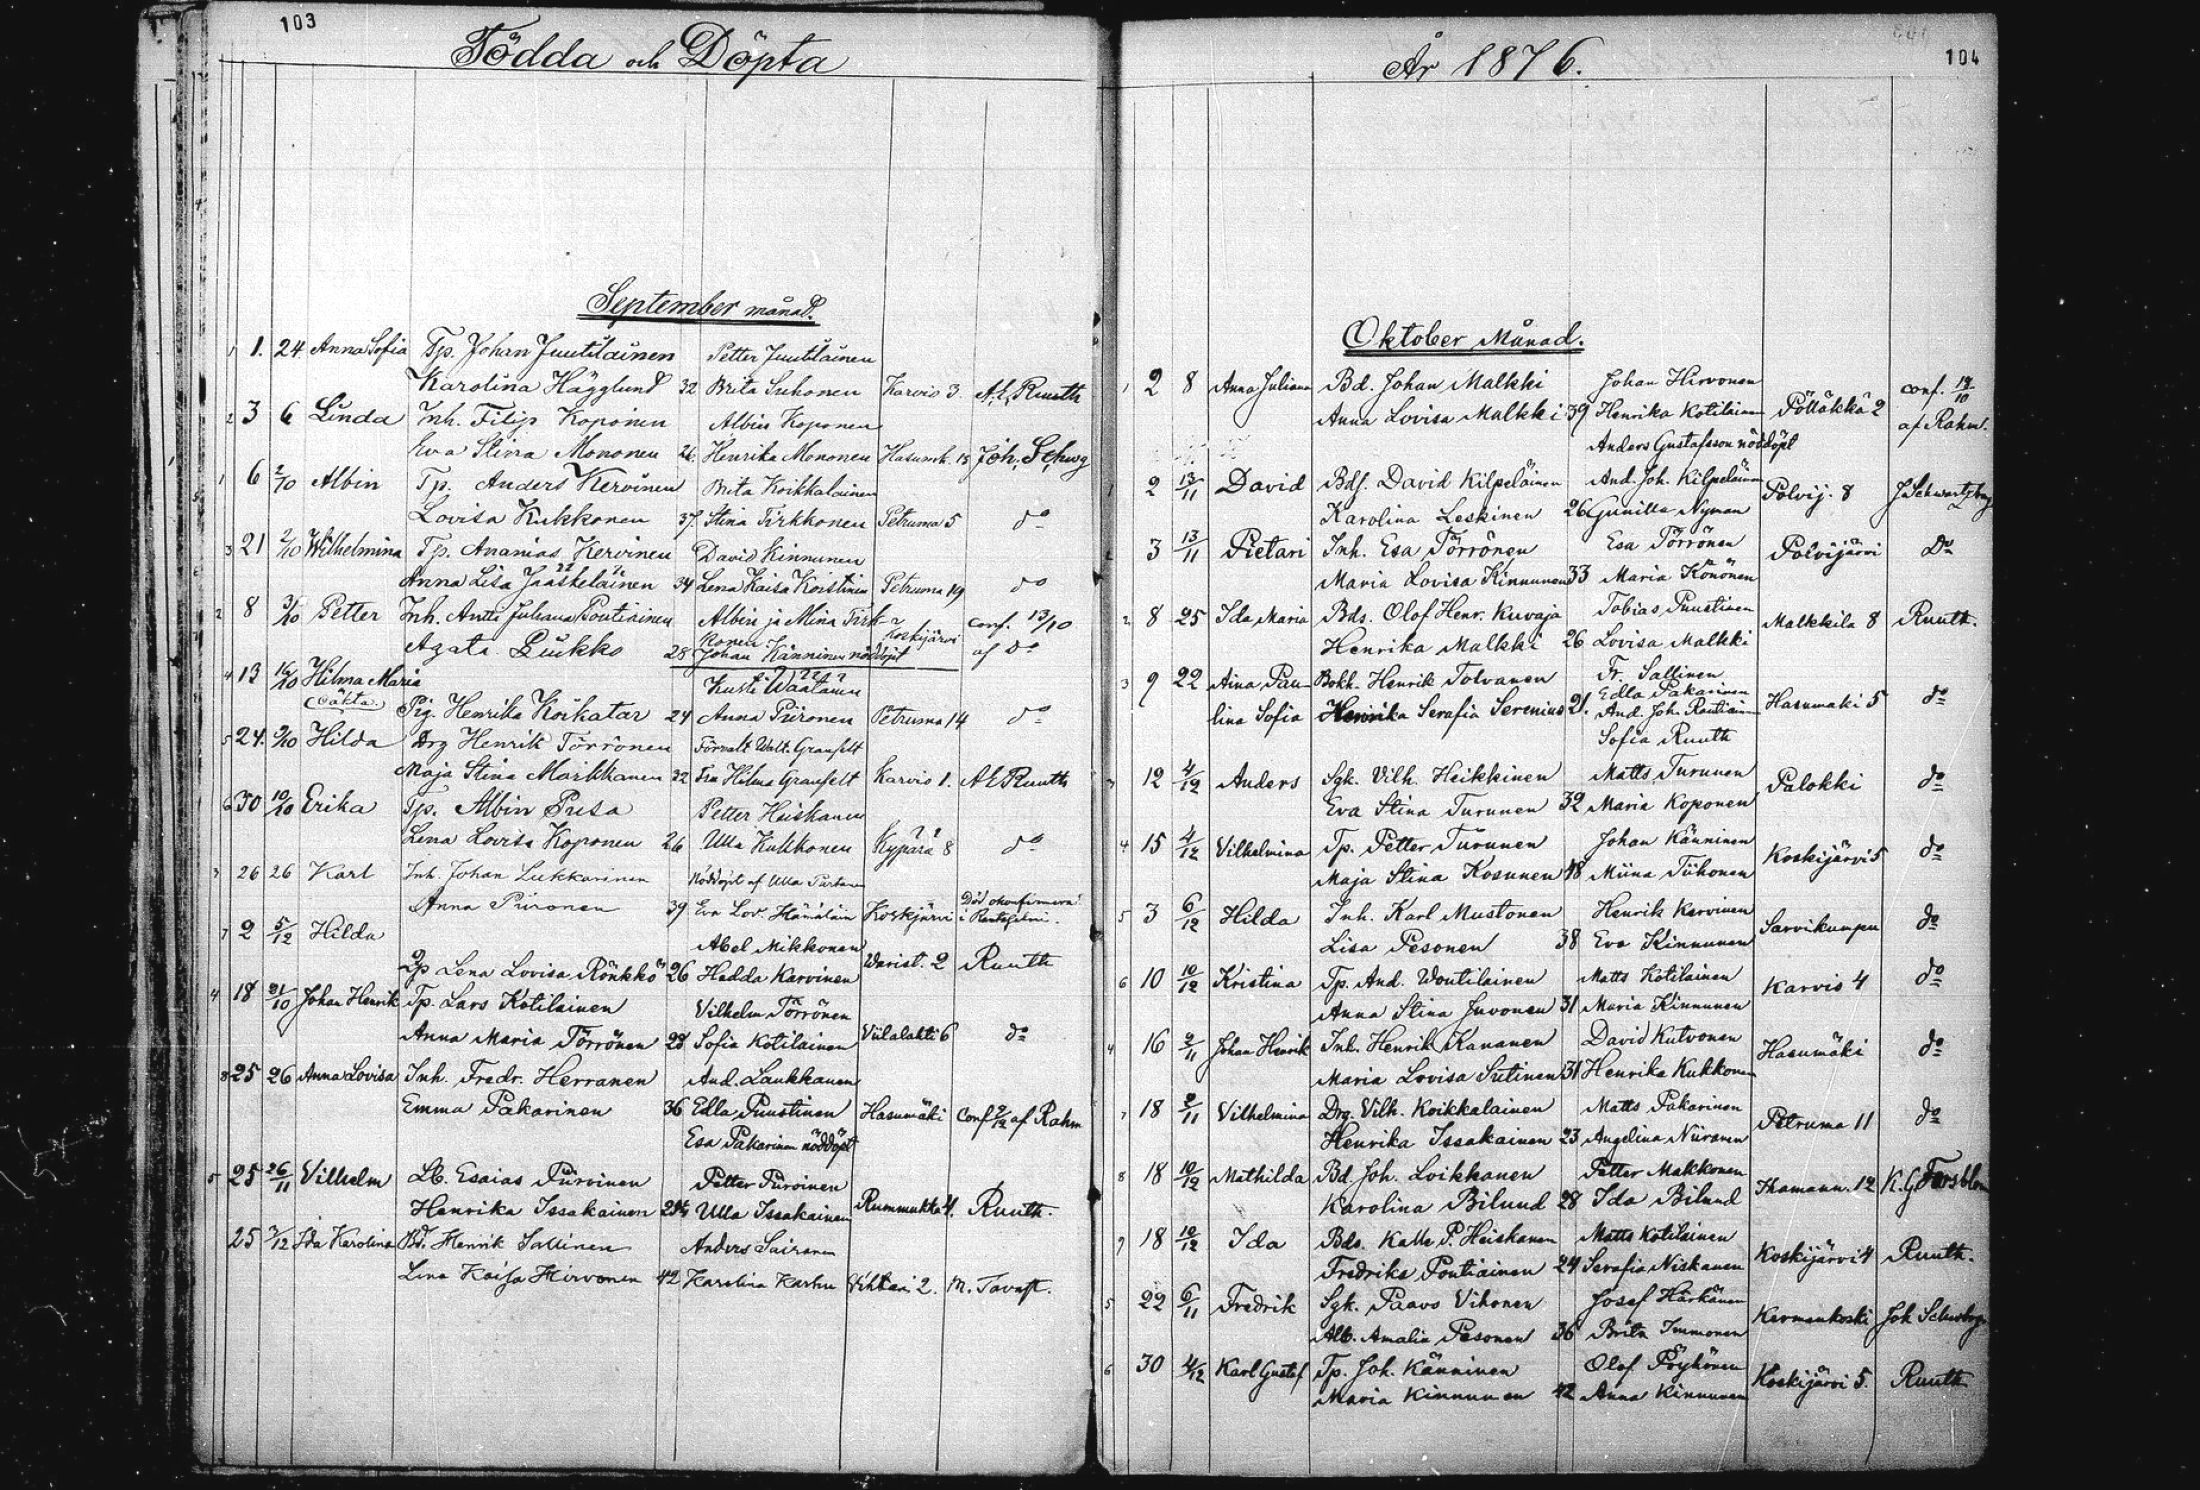 103
Födda och Döpta
September månad.
1 1. 24 Anna Sofia Tp. Johan Juutilainen Petter Juutilainen
Karolina Hägglund 32 Brita Suhonen Karvio 3 A. E. Ruuth
2 3 6 Linda Inh. Filip Koponen Albin Koponen
Eva Stina Mononen 26. Henrika Mononen Hasumk. 13 Joh. Schwg
1 6 2/10 Albin Tp. Anders Kervinen Brita Koikkalainen
Lovisa Kukkonen 37. Stina Tirkkonen Petruma 5 do
3 21 2/10 Wilhelmina Tp. Ananias Kervinen David Kinnunen
Anna Lisa Jääskeläinen 34 Lena Kaisa Koistinen Petruma 19 do
2 8 3/10 Petter Inh. Antti Juhana Poutiainen Albin ja Mina Tirk- conf. 13/10
konen. Koskijärvi
Agata Puikko 28 Johan Känninen nöddöpt af do
4 13 16/10 Hilma Maria Kusti Wäätäinen
(oäkta) Pig. Henrika Koikatar 24 Anna Piironen Petruma 14 do
5 24. 9/10 Hilda Drg Henrik Törrönen Förvalt. Walt. Granfelt
Maja Stina Markkanen 32 Fru Hilma Granfelt Karvio 1. A E Ruuth
6 30 10/10 Erika Tp. Albin Pusa Petter Heiskanen
Lena Lovisa Koponen 26 Ulla Kukkonen Kypärä 8 do
3 26 26 Karl Inh. Johan Lukkarinen Nöddöpt af Ulla Partanen
Anna Piironen 39 Eva Lov. Hämäläin Koskijärvi Död okonfirmerad i Rantasalmi.
7 2 5/12 Hilda Abel Mikkonen
Qp Lena Lovisa Rönkkö 26 Hedda Karvinen Warist. 2 Ruuth
4 18 31/10 Johan Henrik Tp. Lars Kotilainen Vilhelm Törrönen
Anna Maria Törrönen 28 Sofia Kotilainen Viilalahti 6 do
8 25 26 Anna Lovisa Inh. Fredr. Herranen And. Laukkanen
Emma Pakarinen 36 Edla Puustinen Hasumäki Conf 2/12 af Rahm
Esa Pakarinen nöddöpt
5 25 26/11 Vilhelm Lb. Esaias Purvinen Petter Purvinen
Henrika Issakainen 24 Ulla Issakainen Rummukka 4. Ruuth.
25 3/12 Ida Karolina Bd. Henrik Sallinen Anders Sairanen
Lena Kaisa Hirvonen 42 Karolina Karhu Vihtari 2. M. Tavast.
104
År 1876.
Oktober Månad.
1 2 8 Anna Juliana Bd. Johan Malkki Johan Hirvonen conf. 14/10
Anna Lovisa Malkki 39 Henrika Kotilainen Pölläkkä 2 af Rahm.
Anders Gustafsson nöddöpt
1 2 13/11 David Bdf. David Kilpeläinen And. Joh. Kilpeläinen Polvij. 8 J Schwartzberg
Karolina Leskinen 26 Gunilla Nyman
2 3 13/11 Pietari Inh. Esa Törrönen Esa Törrönen Polvijärvi Do
Maria Lovisa Kinnunen 33 Maria Könönen
2 8 25 Ida Maria Bds. Olof Henr. Kuvaja Tobias Puustinen Malkkila 8 Ruuth.
Henrika Malkki 26 Lovisa Malkki
3 9 22 Aina Pau- Bokh. Henrik Tolvanen Fr. Sallinen
Edla Pakarinen Hasumäki 5 do
lina Sofia Henrika Serafia Serenius 21. And. Joh. Rautiain
Sofia Ruuth
3 12 4/12 Anders Sgk. Vilh. Heikkinen Matts Turunen Palokki do
Eva Stina Turunen 32 Maria Koponen
4 15 4/12 Vilhelmina Tp. Petter Turunen Johan Känninen Koskijärvi 5 do
Maja Stina Kosunen 48 Miina Tiihonen
5 3 6/12 Hilda Inh. Karl Mustonen Henrik Kervinen Sarvikumpu do
Lisa Pesonen 38 Eva Kinnunen
6 10 10/12 Kristina Tp. And. Woutilainen Matts Kotilainen Karvio 4 do
Anna Stina Juvonen 31 Maria Kinnunen
4 16 2/11 Johan Henrik Inh. Henrik Kananen David Kutvonen Hasumäki do
Maria Lovisa Sutinen 31 Henrika Kukkonen
7 18 2/11 Vilhelmina Drg. Vilh. Koikkalainen Matts Pakarinen Petruma 11 do
Henrika Issakainen 23 Angelina Niiranen
8 18 10/12 Mathilda Bd. Joh. Loikkanen Petter Makkonen Thamann. 12 K. G Forsblom
Karolina Bilund 28 Ida Bilund
9 18 10/12 Ida Bds. Kalle P. Heiskanen Matts Kotilainen Koskijärvi 4 Ruuth.
Fredrika Poutiainen 24 Serafia Niskanen
5 22 6/11 Fredrik Sgk. Paavo Vihonen Josef Härkönen Kermankoski Joh Schwbrg
Alb. Amalia Pesonen 36 Brita Immonen
6 30 4/12 Karl Gustaf Tp. Joh. Känninen Olof Pöyhönen Koskijärvi 5. Ruuth
Maria Kinnunen 42 Anna Kinnunen